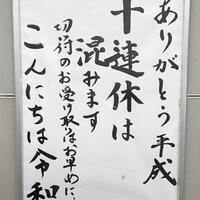 ありがとう平成
十連休は
混みます
切符のお受け取りはお早めに、
こんにちは令和